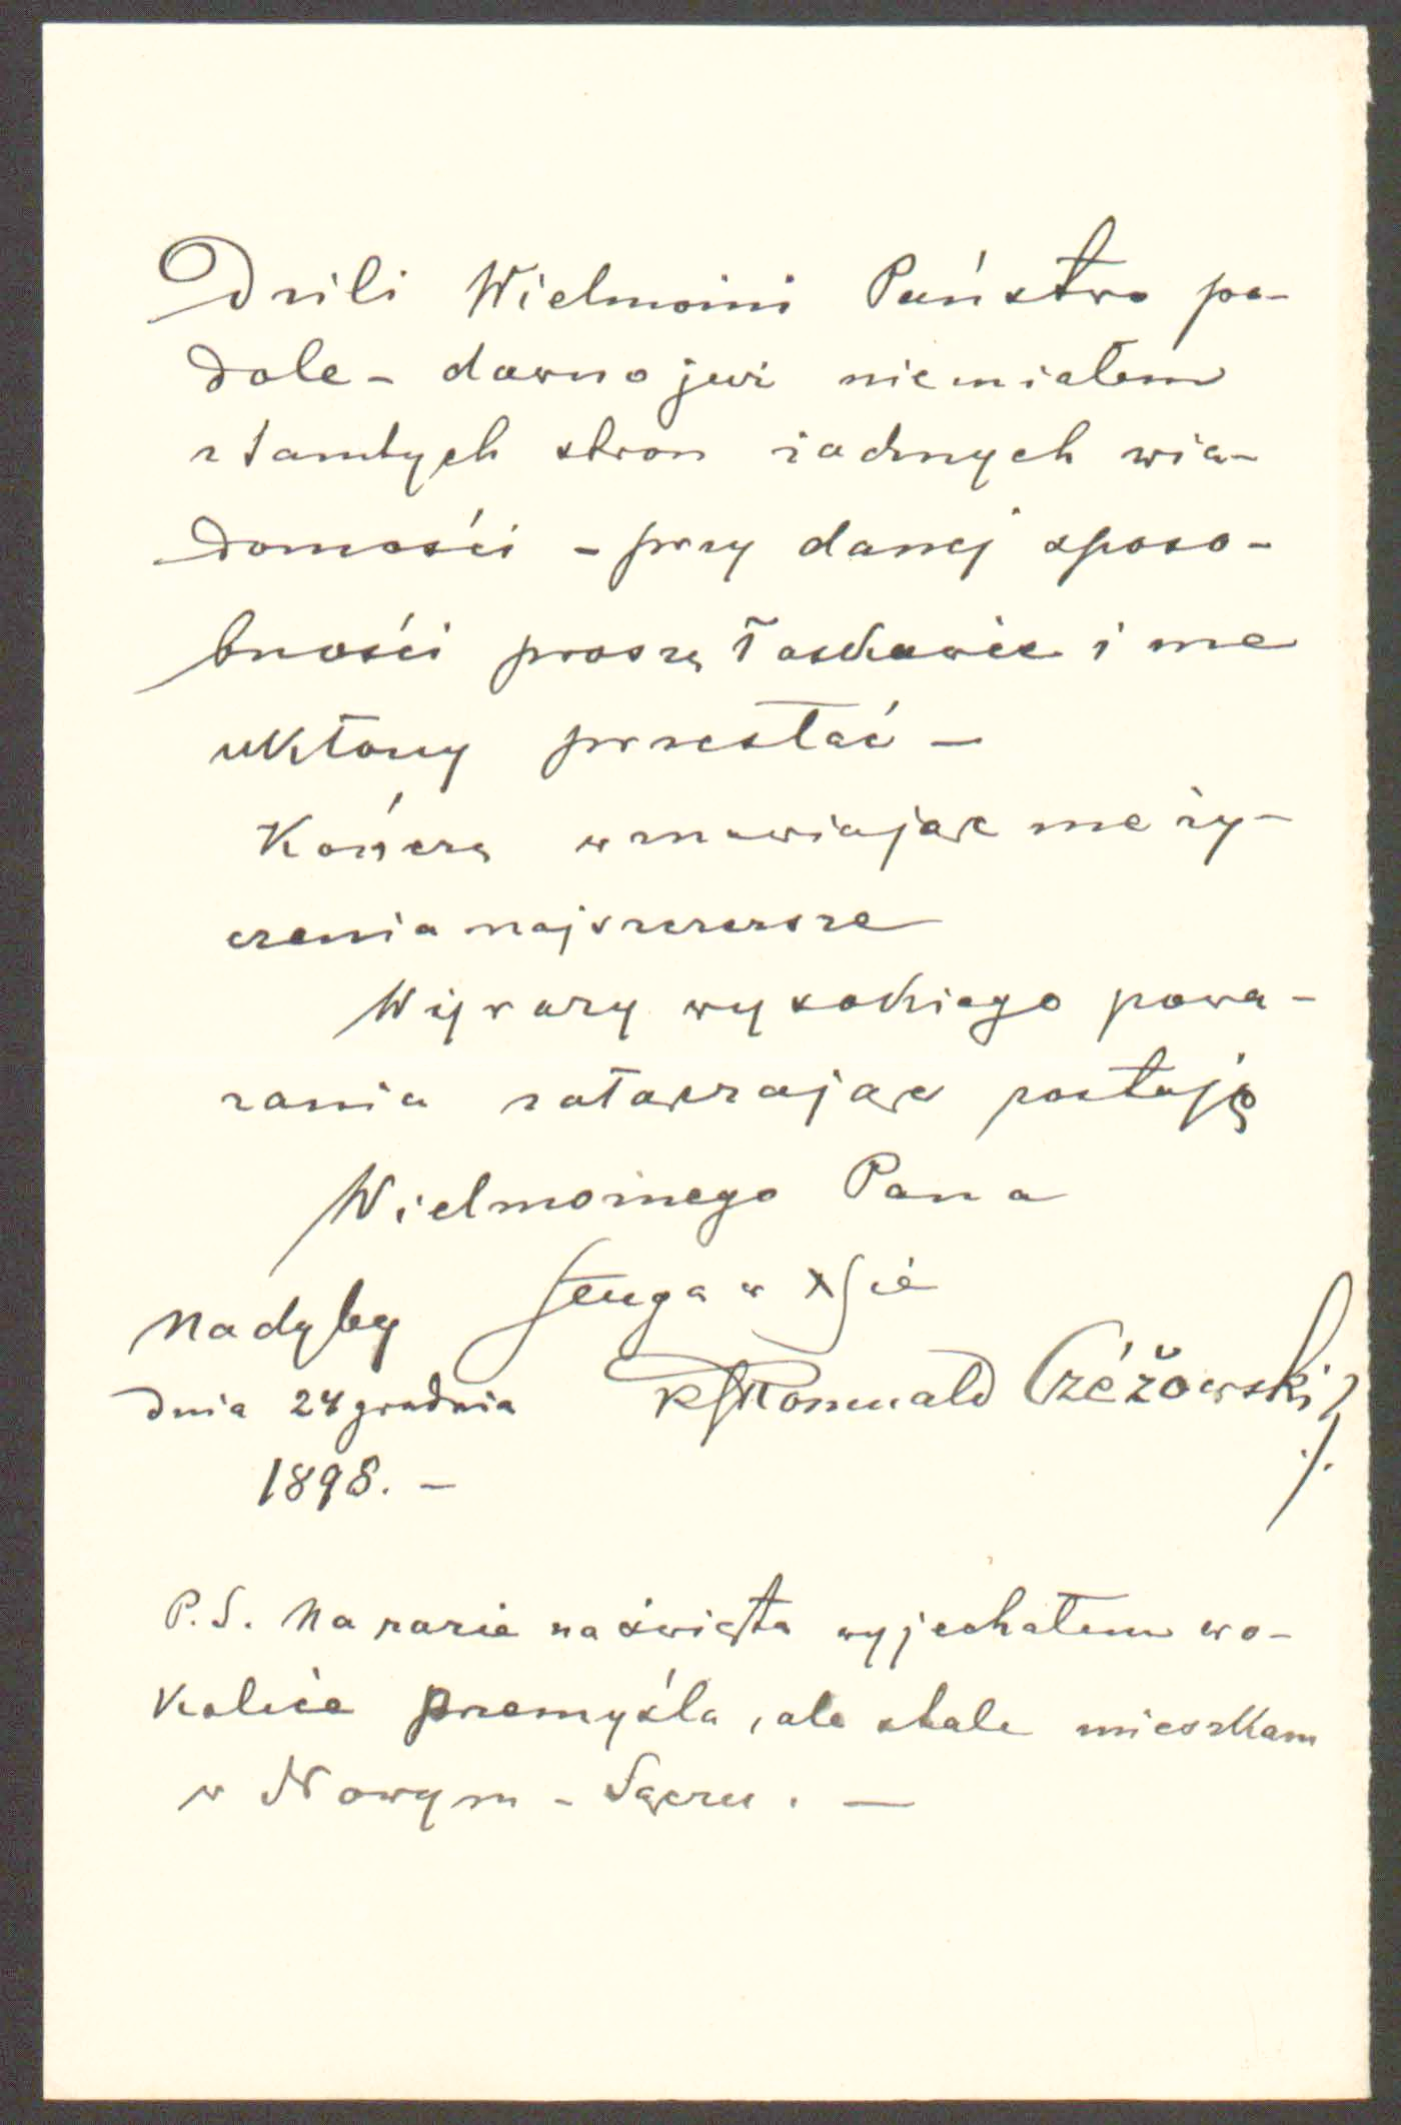 dzili Wielmożni Państwo po-
dole - dawno już nie miałem
z tamtych stron żadnych wia-
domości - przy danej sposo-
bności proszę łaskawie i me
ukłony przesłać -
Kończę wznawiając me ży-
czenia najszczersze
Wyrazy wysokiego powa-
żania załączając zostaję
Wielmożnego Pana
sługa w XSie
Nadyby
dnia 24 grudnia
KS Romuald Czéžowski
1898. -
P.S. Na razie na święta wyjechałem w o-
kolice Przemyśla, ale stale mieszkam
w Nowym - Sączu. -